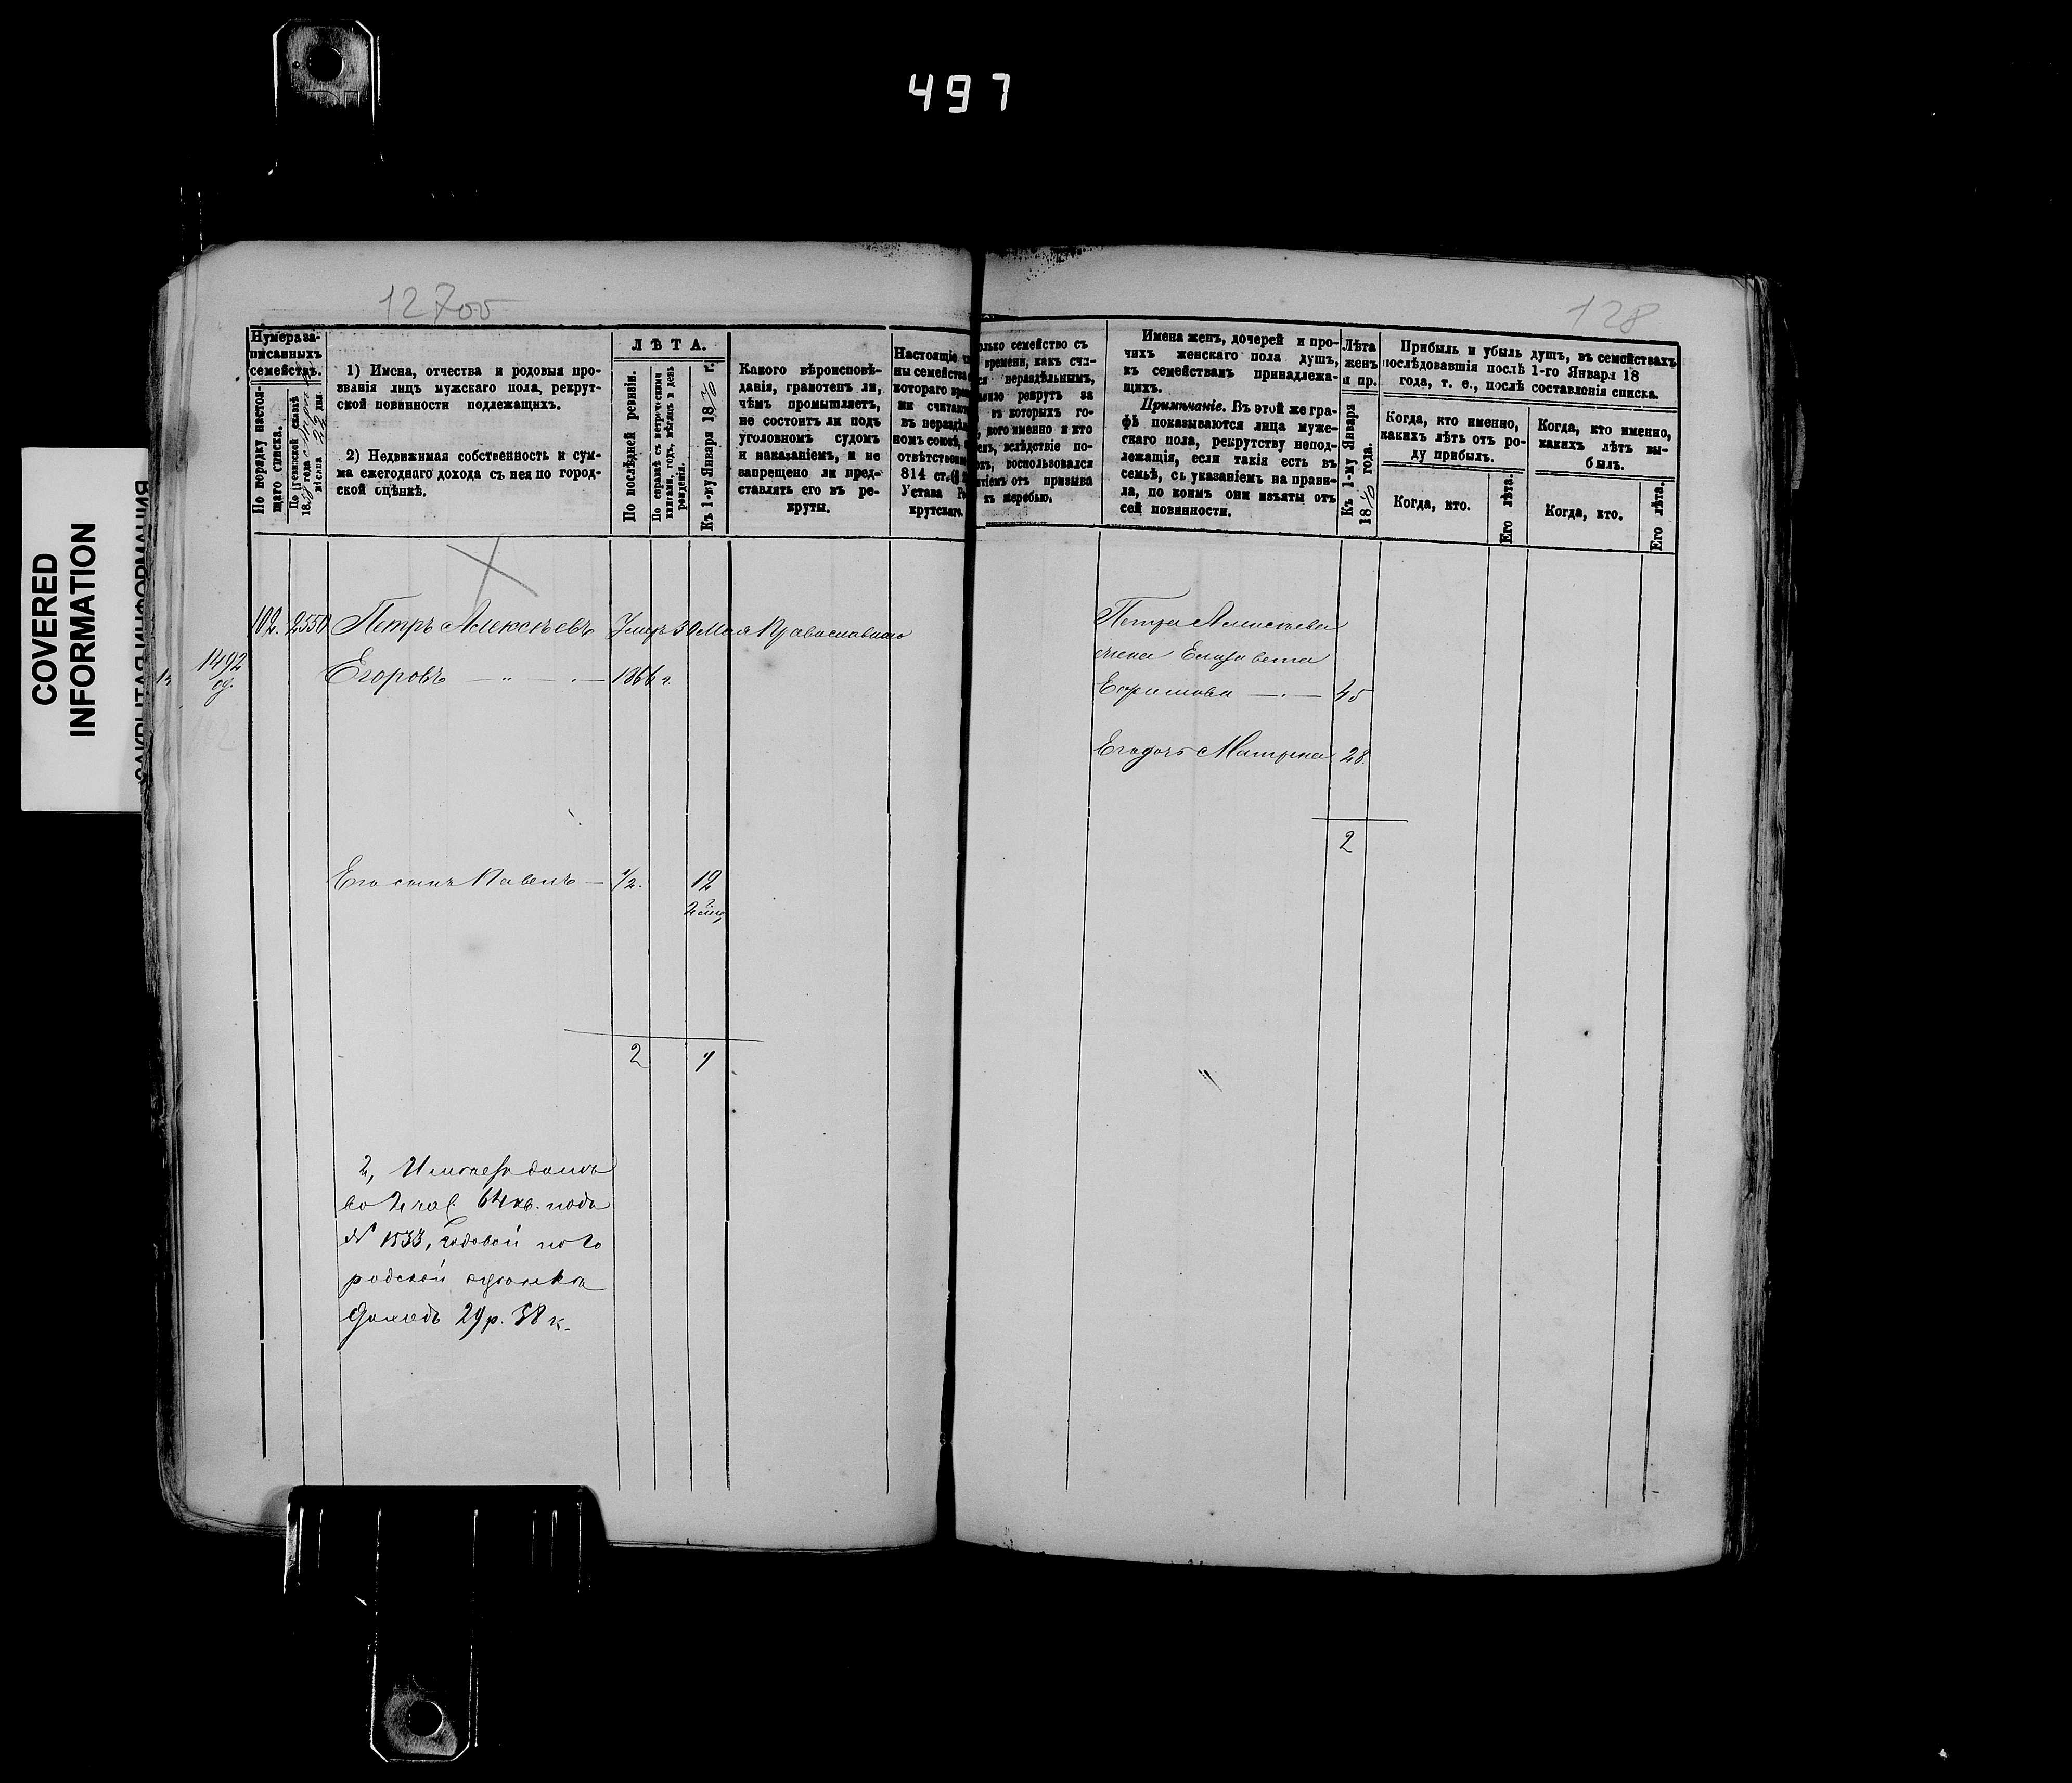 497
COVERED
INFORMATION
127об
128
Нумера за-
писанныхъ
семействъ.
По порядку настоя-
щаго списка.
По ревизской сказкѣ
18 года
мѣсяца 29 дня.
1) Имена, отчества и родовыя про-
званія лицъ мужскаго пола, рекрут-
ской повинности подлежащихъ.
2) Недвижимая собственность и сум-
ма ежегоднаго дохода съ нея по город-
ской оцѣнкѣ.
ЛѢТА.
По послѣдней ревизіи.
По справкѣ съ метрическими
книгами, годъ, мѣсяцъ и день
рожденія.
Къ 1-му Января 1870 г.
Какого вѣроисповѣ-
данія, грамотенъ ли,
чѣмъ промышляетъ,
не состоитъ ли подъ
уголовномъ судомъ
и наказаніемъ, и не
запрещено ли пред-
ставлять его въ ре-
круты.
Настоящіе
ны семейства
котораго
ни считаю
въ нераздѣ
номъ союзѣ,
отвѣтствен
814 ст.
Устава Ре
крутскаго.
олько семейство съ
времени, какъ счи-
ся нераздѣльнымъ,
рекрутъ за
въ которыхъ го-
кого именно и кто
вслѣдствіе по-
воспользовался
отъ призыва
къ жеребью.
Имена женъ, дочерей и про-
чихъ женскаго пола душъ,
къ семействамъ принадлежа-
щихъ.
Примѣчаніе. Въ этой же гра-
фѣ показываются лица муже-
скаго пола, рекрутству непод-
лежащія, если такія есть въ
семьѣ, съ указаніемъ на прави-
ла, по коимъ они изъяты отъ
сей повинности.
Лѣта
женъ
и пр.
Къ 1-му Января
1870 года.
Прибыль и убыль душъ, въ семействахъ
послѣдовавшія послѣ 1-го Января 18
года, т. е., послѣ составленія списка.
Когда, кто именно,
какихъ лѣтъ отъ ро-
ду прибылъ.
Когда, кто именно,
какихъ лѣтъ вы-
былъ.
Когда, кто.
Его лѣта.
Когда, кто.
Его лѣта.
102. 2550 Петръ Алексѣевъ Умеръ 30 Мая Православнаго
1492
Егоровъ 1866 г.
Его сынъ Павелъ 1/2. 12
2 1
2, Имѣетъ домъ
во 2й час. 64 кв. подъ
№ 1533, годовой по го
родской оцѣнкѣ
доходъ 29 р. 38 к.
Петра Алексѣева
жена Елизавета
Ефимова 45
Его дочь Матрена 28.
2